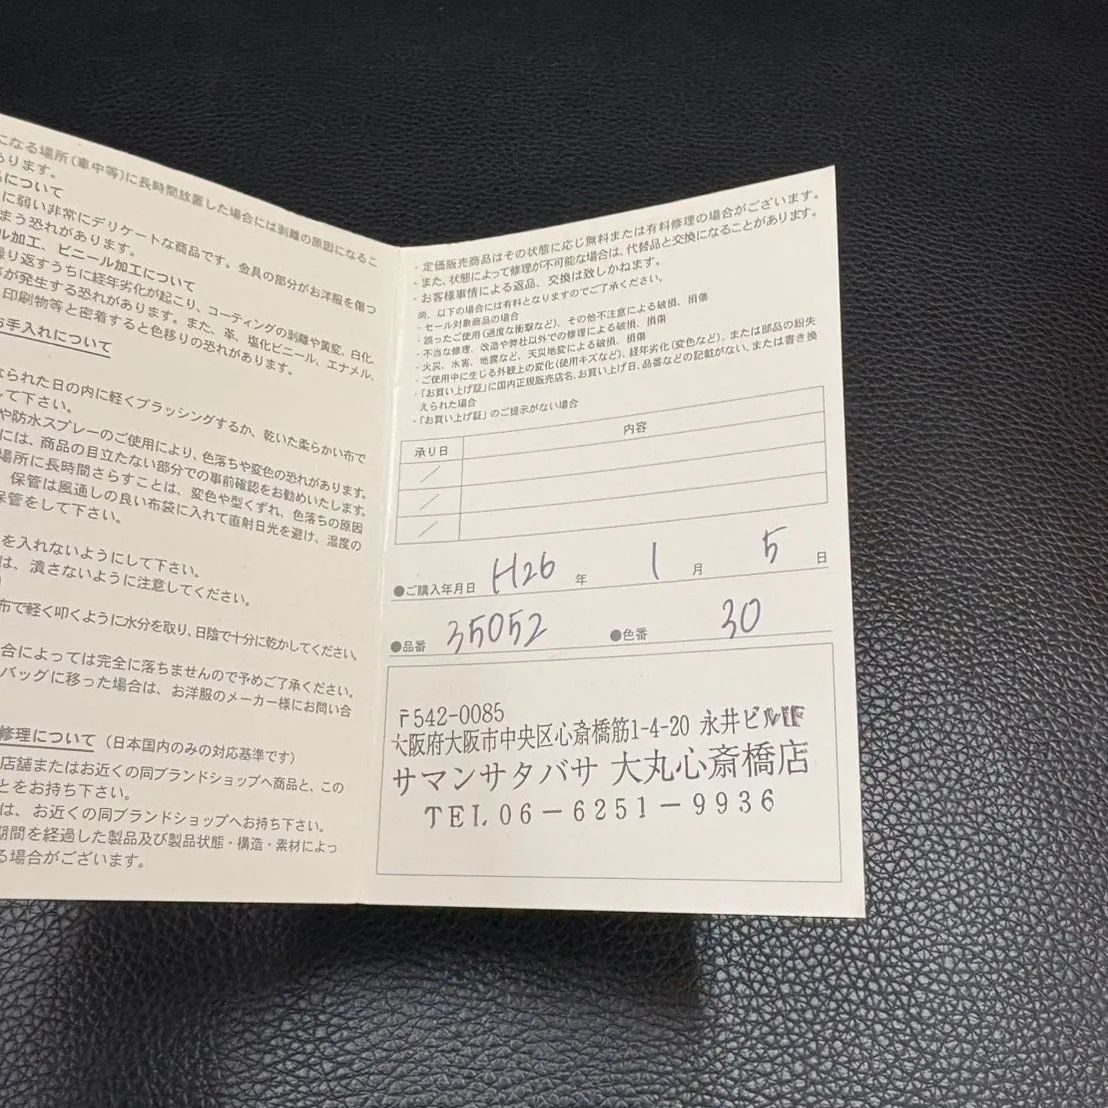 になる場所(車中等)に長時間放置した場合には剥離の原因になるこ
あります。
品について
に弱い非常にデリケートな商品です。金具の部分がお洋服を傷つ
まう恐れがあります。
ル加工、ビニール加工について
繰り返すうちに経年劣化が起こり、コーティングの剥離や黄変、白化
が発生する恐れがあります。また、革、塩化ビニール、エナメル、
印刷物等と密着すると色移りの恐れがあります。
お手入れについて
なられた日の内に軽くブラッシングするか、乾いた柔らかい布で
して下さい。
や防水スプレーのご使用により、色落ちや変色の恐れがあります。
には、商品の目立たない部分での事前確認をお勧めいたします。
場所に長時間さらすことは、変色や型くずれ、色落ちの原因
保管は風通しの良い布袋に入れて直射日光を避け、湿度の
保管をして下さい。
を入れないようにして下さい。
は、潰さないように注意してください。
布で軽く叩くように水分を取り、日陰で十分に乾かしてください。
合によっては完全に落ちませんので予めご了承ください。
バッグに移った場合は、お洋服のメーカー様にお問い合
修理について(日本国内のみの対応基準です)
店舗またはお近くの同ブランドショップへ商品と、この
とをお持ち下さい。
は、お近くの同ブランドショップへお持ち下さい。
期間を経過した製品及び製品状態・構造・素材によっ
る場合がございます。
・定価販売商品はその状態に応じ無料または有料修理の場合がございます。
・また、状態によって修理が不可能な場合は、代替品と交換になることがあります。
・お客様事情による返品、交換は致しかねます。
尚、以下の場合には有料となりますのでご了承ください。
・セール対象商品の場合
・誤ったご使用(過度な衝撃など)、その他不注意による破損、損傷
・不当な修理、改造や弊社以外での修理による破損、損傷
・火災、水害、地震など、天災地変による破損、損傷
・ご使用中に生じる外観上の変化(使用キズなど)、経年劣化(変色など)、または部品の紛失
・「お買い上げ証」に国内正規販売店名、お買い上げ日、品番などの記載がない、または書き換
えられた場合
・「お買い上げ証」のご提示がない場合
承り日 内容
/
/
/
●ご購入年月日 H26 年 1 月 5 日
●品番 35052 ●色番 30
〒542-0085
大阪府大阪市中央区心斎橋筋1-4-20 永井ビル1F
サマンサタバサ 大丸心斎橋店
TEL.06-6251-9936